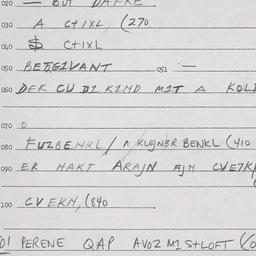 020 — BUT DAFKE
030 A C+IXL (270
040 $ C+IXL
050 BETGZVANT 051 —
060 DER CU DI KIND MIT A KOLI
070 0
080 FUZBENKL/ A KLEJNER BENKL (410
090 ER HAKT ARAJN AJN CVETKI
100 CVEKN, (840
01 PERENE QAP AVOZ MI S+LOFT (0